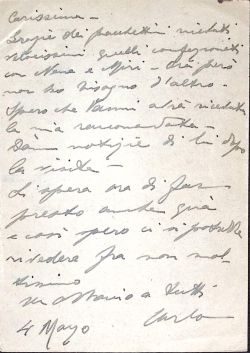 Carissime -
Grazie dei pacchetti ricevuti
velocissimi quelli consegnati
con Nene e Miri - Ora però
non ho bisogno d'altro.
Spero che Vanni avrà ricevuto
la mia raccomandata -
notizie di lui dopo
la visita -
Si spera ora di far
presto anche
e così spero ci si potrebbe
rivedere fra non mol-
tissimo
Un abbraccio a tutti
4 Mayo Carlo